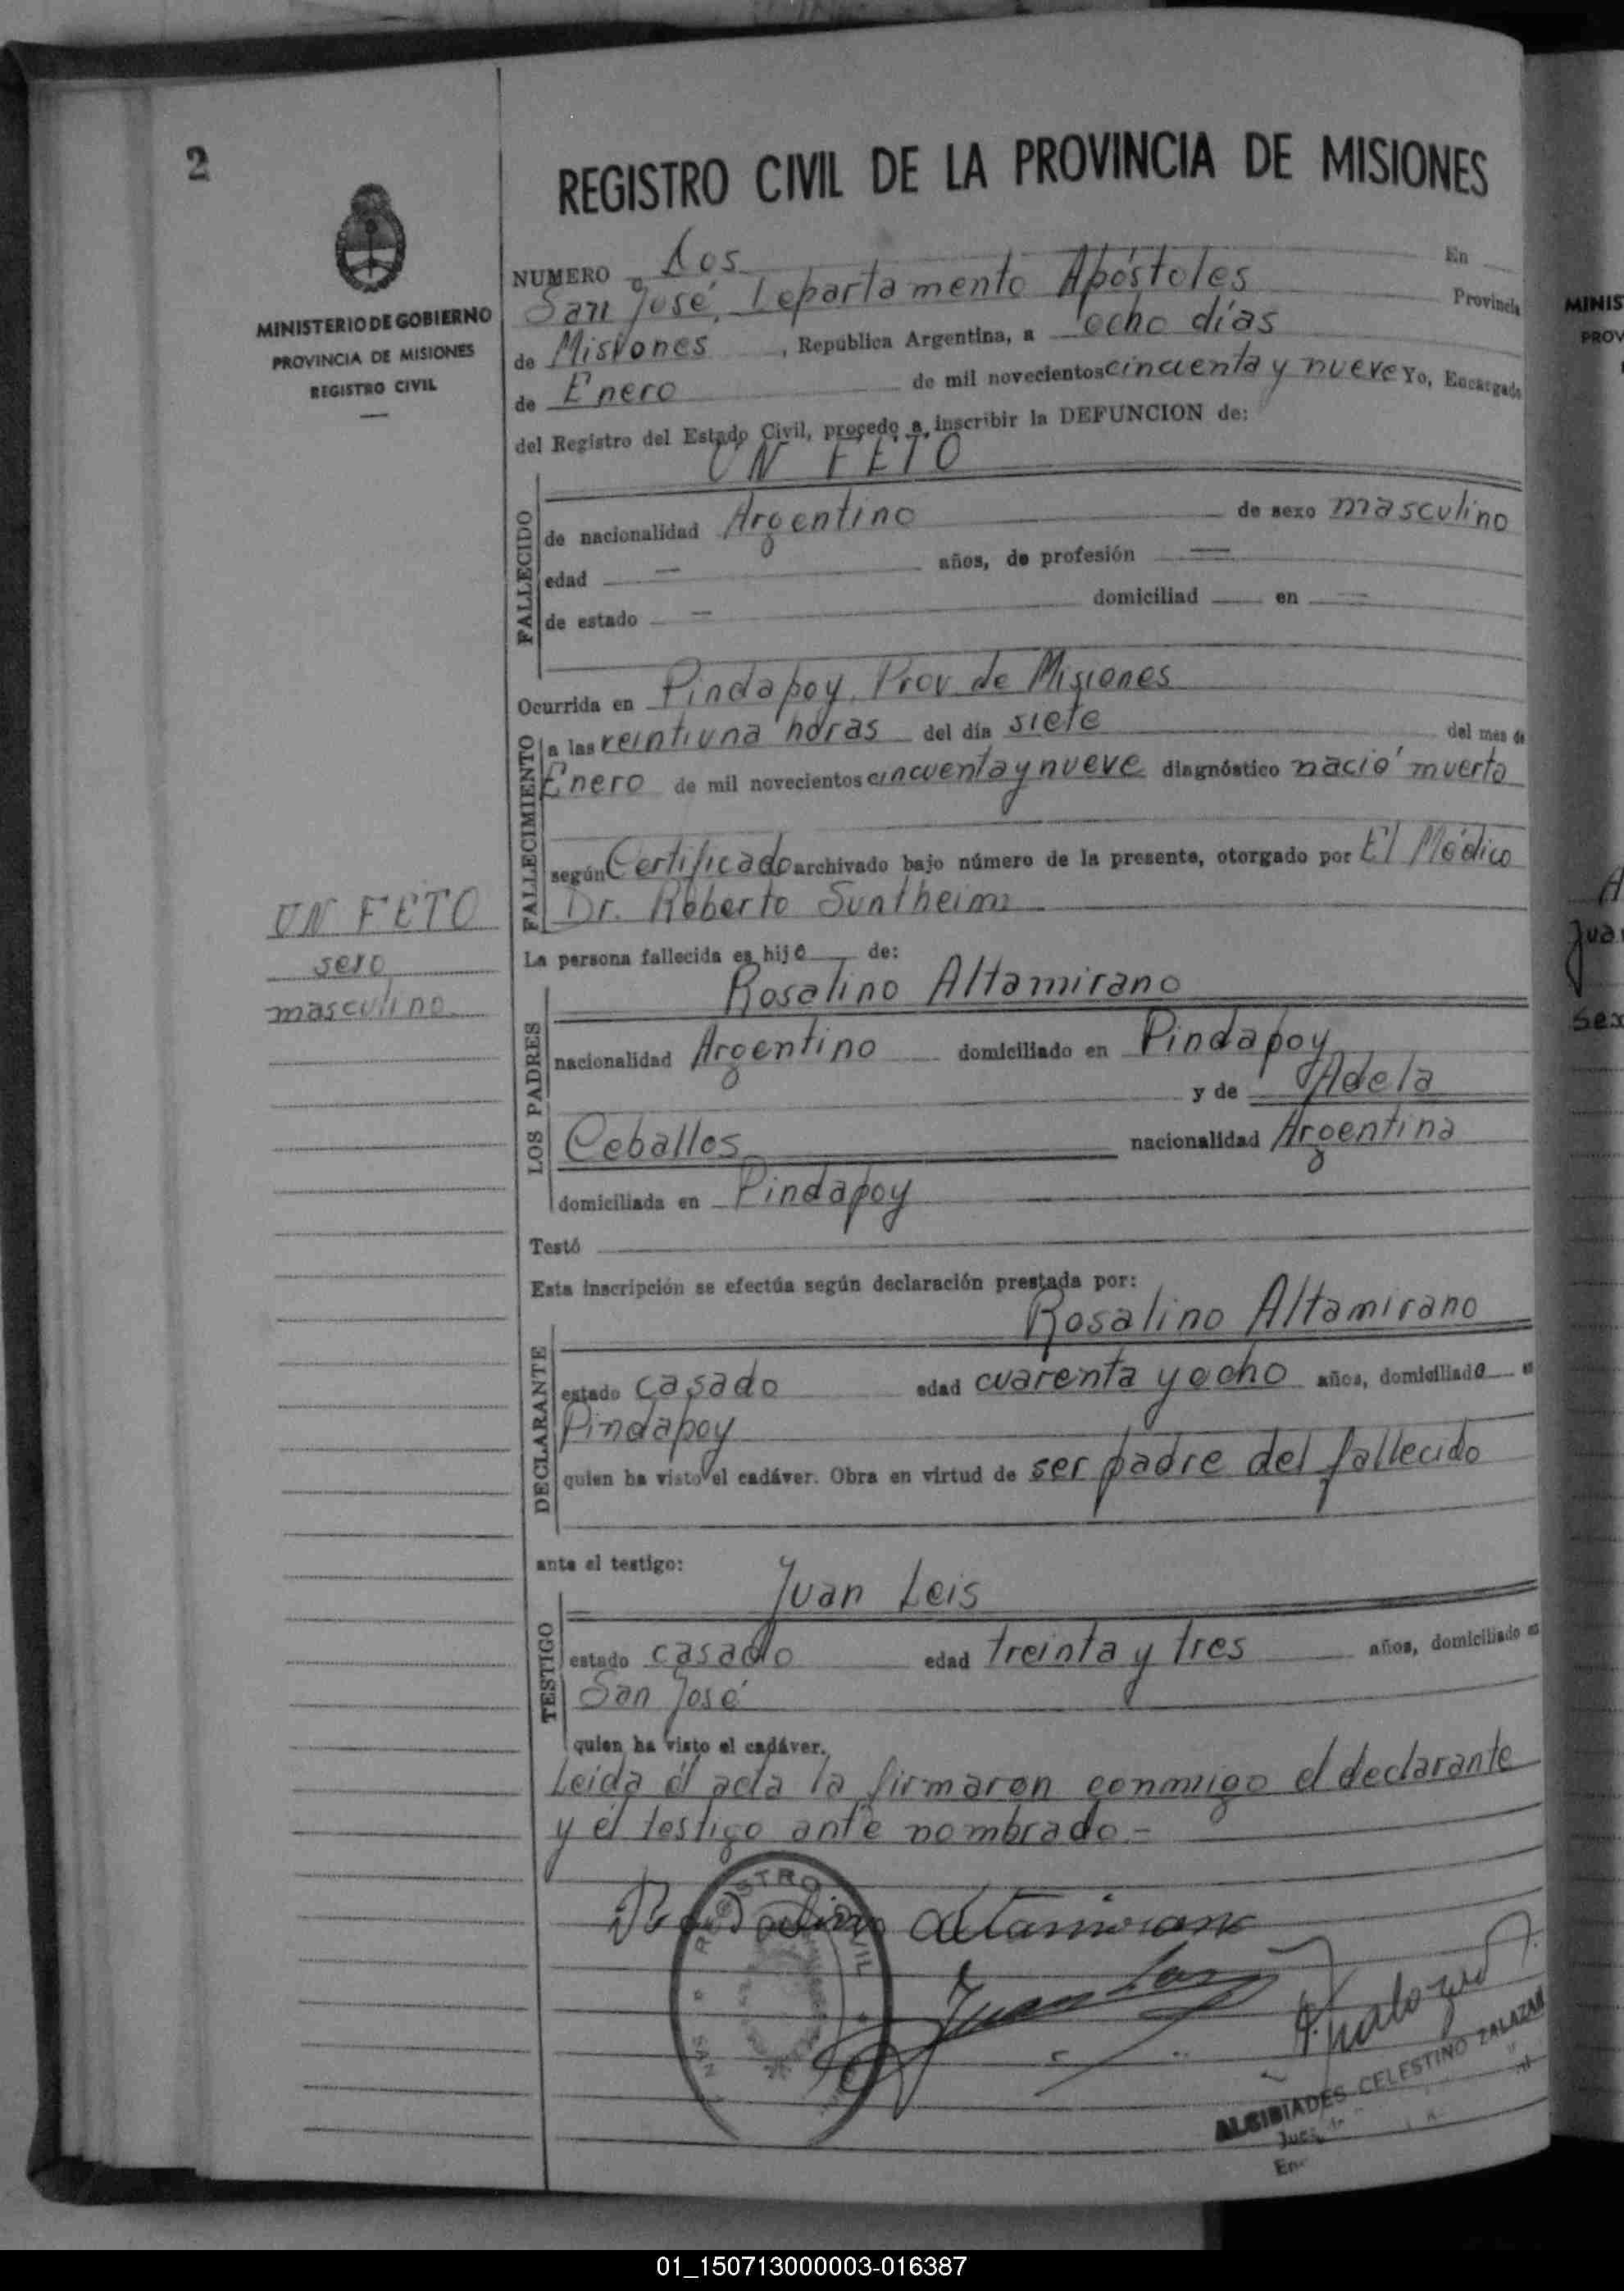 2
REGISTRO CIVIL DE LA PROVINCIA DE MISIONES
MINISTERIO DE GOBIERNO
PROVINCIA DE MISIONES
REGISTRO CIVIL
NUMERO Dos En
San José, Departamento Apóstoles Provincia
de Misiones, República Argentina, a ocho días
de Enero de mil novecientos cincuenta y nueve Yo, Encargado
del Registro del Estado Civil, procedo a inscribir la DEFUNCION de:
UN FETO
FALLECIDO
de nacionalidad Argentino de sexo masculino
edad — años, de profesión —
de estado — domiciliad en —
Ocurrida en Pindapoy, Prov de Misiones
FALLECIMIENTO
a las veintiuna horas del día siete del mes de
Enero de mil novecientos cincuenta y nueve diagnóstico nació muerto
según Certificado archivado bajo número de la presente, otorgado por El Médico
Dr. Roberto Suntheim
UN FETO
sexo
masculino
La persona fallecida es hijo de:
Rosalino Altamirano
LOS PADRES
nacionalidad Argentino domiciliado en Pindapoy
y de Adela
Ceballos nacionalidad Argentina
domiciliada en Pindapoy
Testó
Esta inscripción se efectúa según declaración prestada por:
Rosalino Altamirano
DECLARANTE
estado casado edad cuarenta y ocho años, domiciliado en
Pindapoy
quien ha visto el cadáver. Obra en virtud de ser padre del fallecido
ante el testigo:
Juan Leis
TESTIGO
estado casado edad treinta y tres años, domiciliado en
San José
quien ha visto el cadáver.
Leida el acta la firmaron conmigo el declarante
y el testigo ante nombrado.-
Altamirano
REGISTRO CIVIL
SAN
Juan
ALCIBIADES CELESTINO ZALAZAR
MINIS
PROV
Jua
Sex
01_150713000003-016387